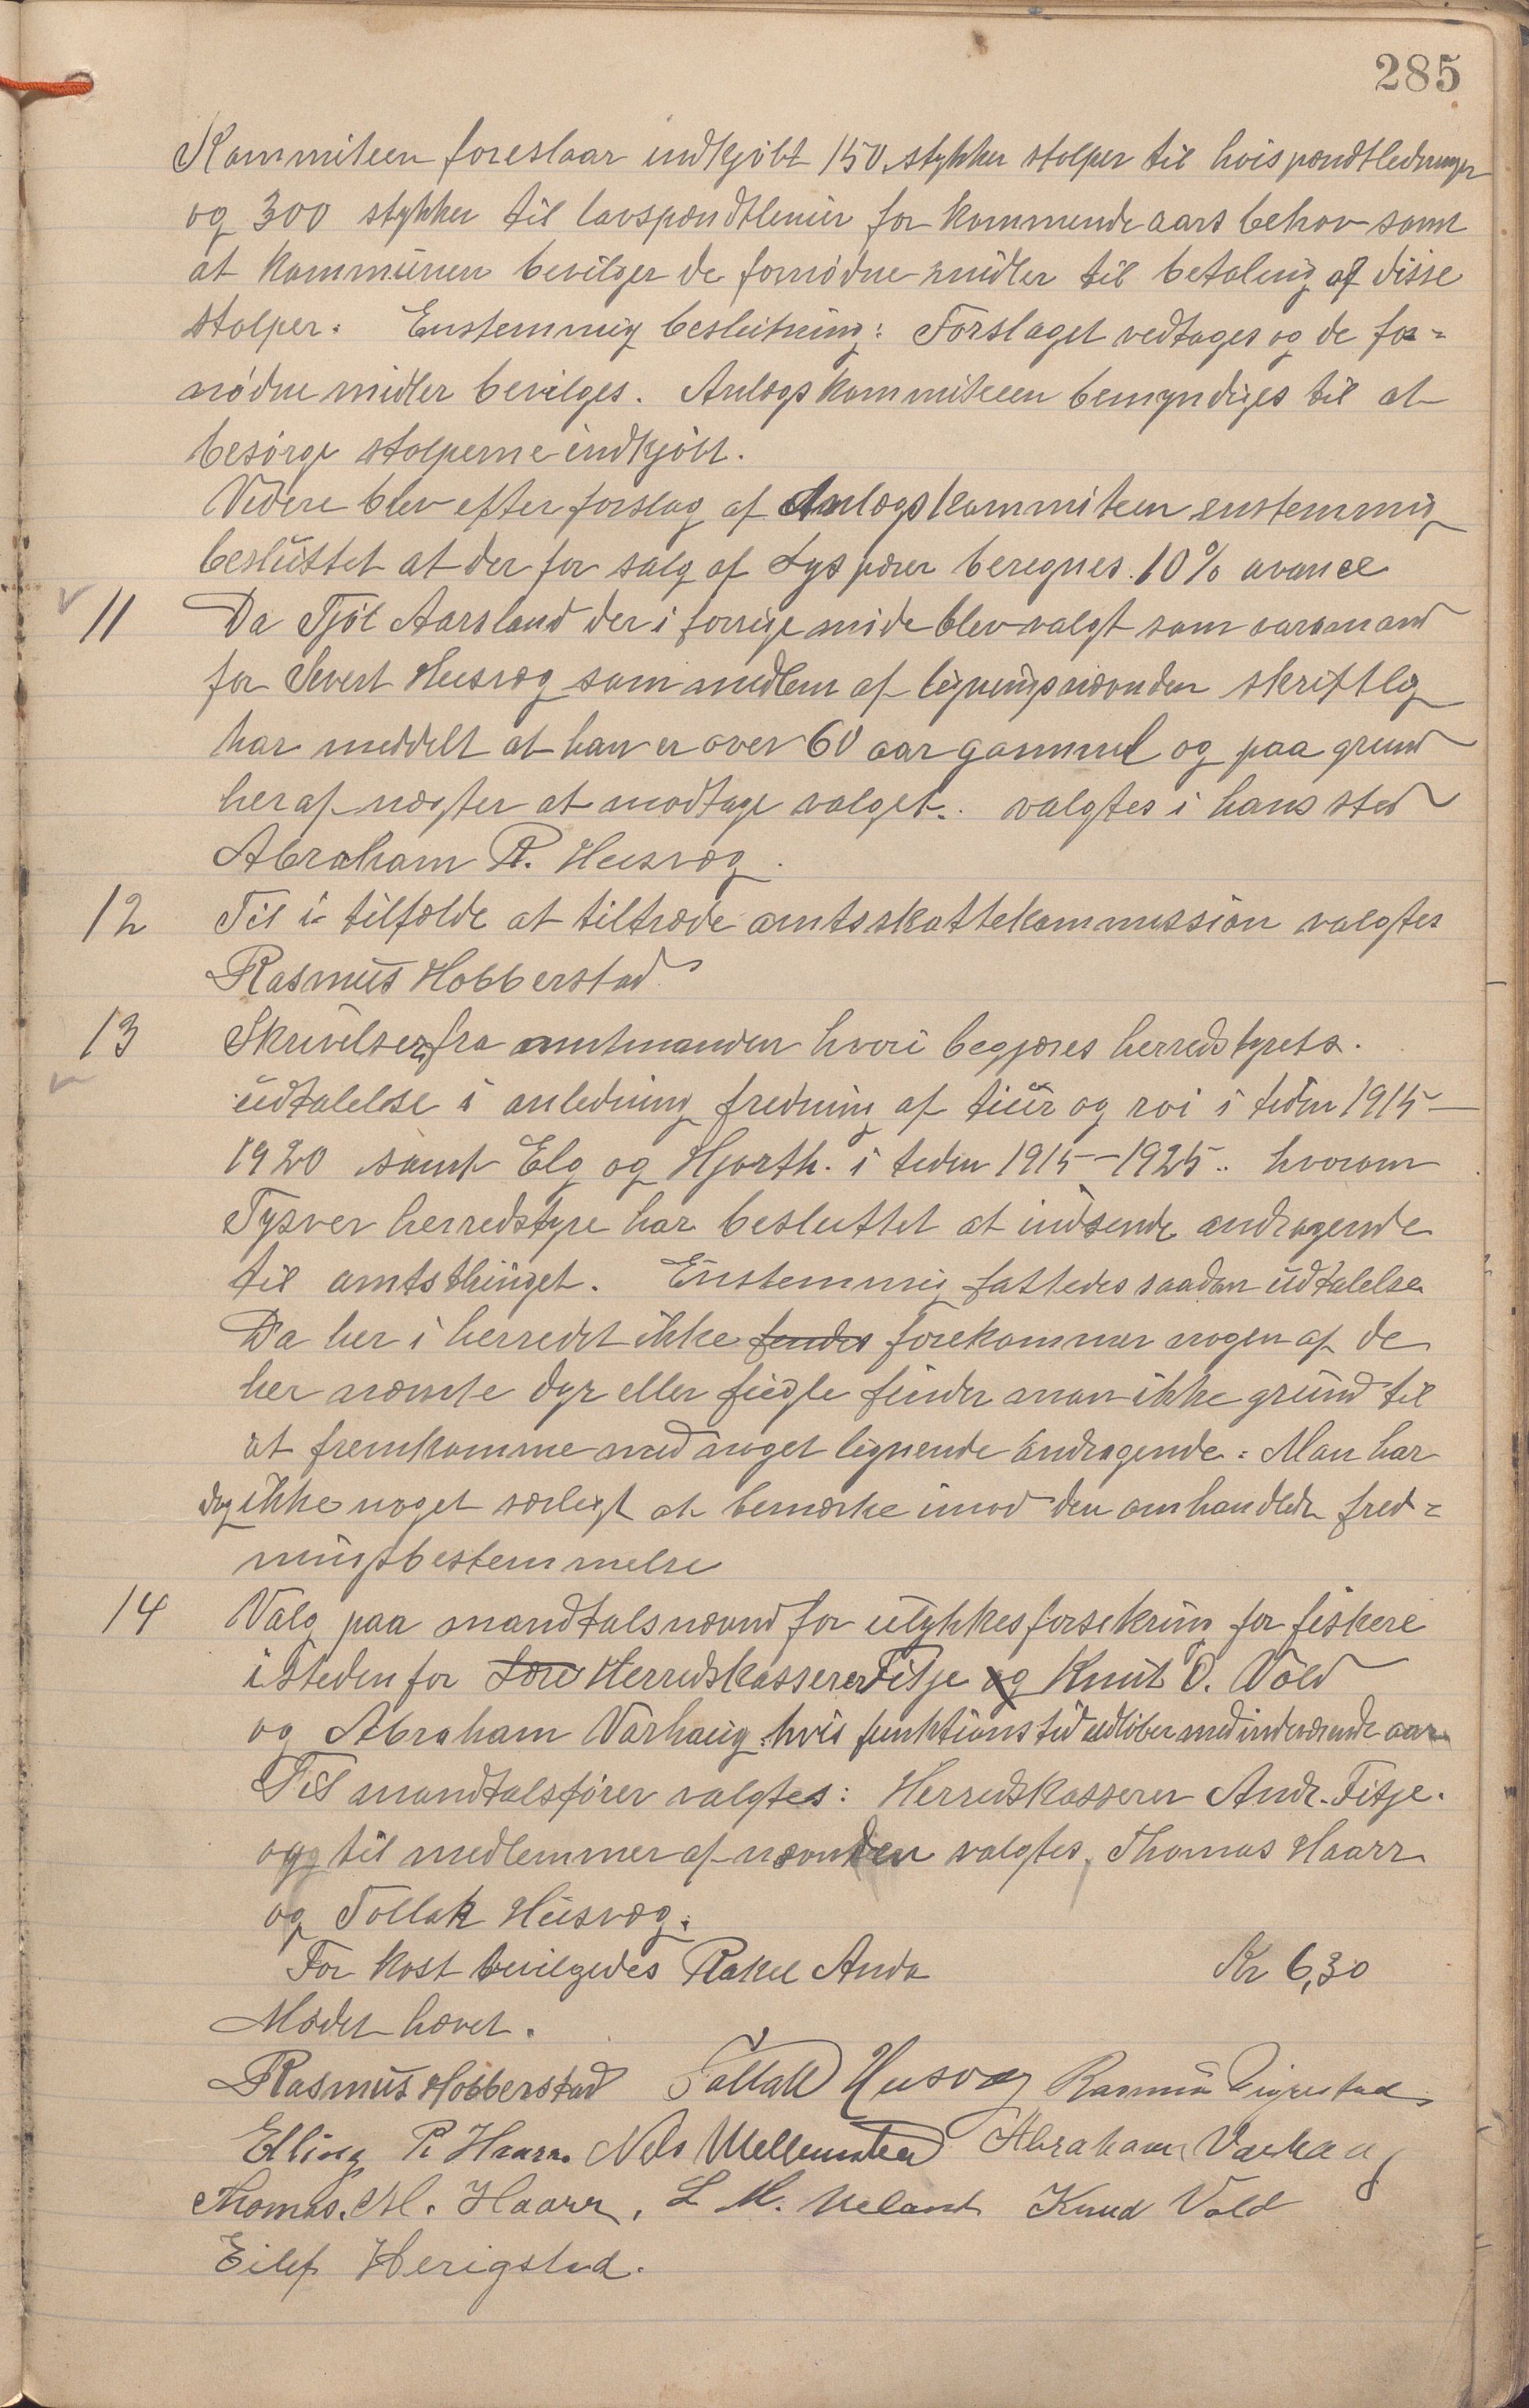 285
Kommiteen foreslaar indkjöbt 150 stykker stolper til höispændtledninger
og 300 stykker til lavspændtlinier for kommende aars behov samt
at kommunen bevilger de fornödne midler til betaling af disse
stolper. Enstemmig beslutning: Forslaget vedtages og de for-
nödne midler bevilges. Anlægskommiteeen bemyndiges til at
besörge stolperne indkjöbt.
Videre blev efter forslag af Anlægskommiteen enstemmig
besluttet at der for salg af Lyspærer beregnes 10% avance
11 Da Tjöl Aarsland der i forrige möde blev valgt som varamand
for Sivert Husvæg som medlem af ligningsnævnden skriftlig
har meddelt at han er over 60 aar gammel og paa grund
heraf nægter at modtage valget. valgtes i hans sted
Abraham R. Husvæg.
12 Til i tilfælde at tiltræde amtsskattekommission valgtes
Rasmus Hobberstad
13 Skrivelse fra amtmanden hvori begjæres herredstyrets
udtalelse i anledning fredning af tiur og röi i tiden 1915–
1920 samt Elg og Hjorth. i tiden 1915–1925.. hvorom
Tysvær herredstyre har besluttet at indsende andragende
til amtsthinget. Enstemmig fattedes saadan udtalelse
Da her i herredet ikke findes forekommer nogen af de
her nævnte dyr eller fugle finder man ikke grund til
at fremkomme med noget lignende andragende. Man har
dog ikke noget særligt at bemærke imod den omhandlede fred-
ningsbestemmelse
14 Valg paa mandtalsnævnd for ulykkesforsikring for fiskere
isteden for Herredskasserer Fitje og Knut O. Vold
og Abraham Varhaug hvis funktionstid udlöber med indeværende aar
Til mandtalsförer valgtes: Herredskasserer Andr. Fitje.
og til medlemmer af nævnden valgtes Thomas Haarr
og Tollak Husvæg.
For kost bevilgedes Rakel Anda Kr 6,30
Mödet hævet.
Rasmus Hobberstad Tollak Husvæg Rasmus
Elling R Haarr. Nels Mellemstrand Abraham Varhaug
Thomas. M. Haarr, L M. Ueland Knud Vold
Eilef Herigstad.